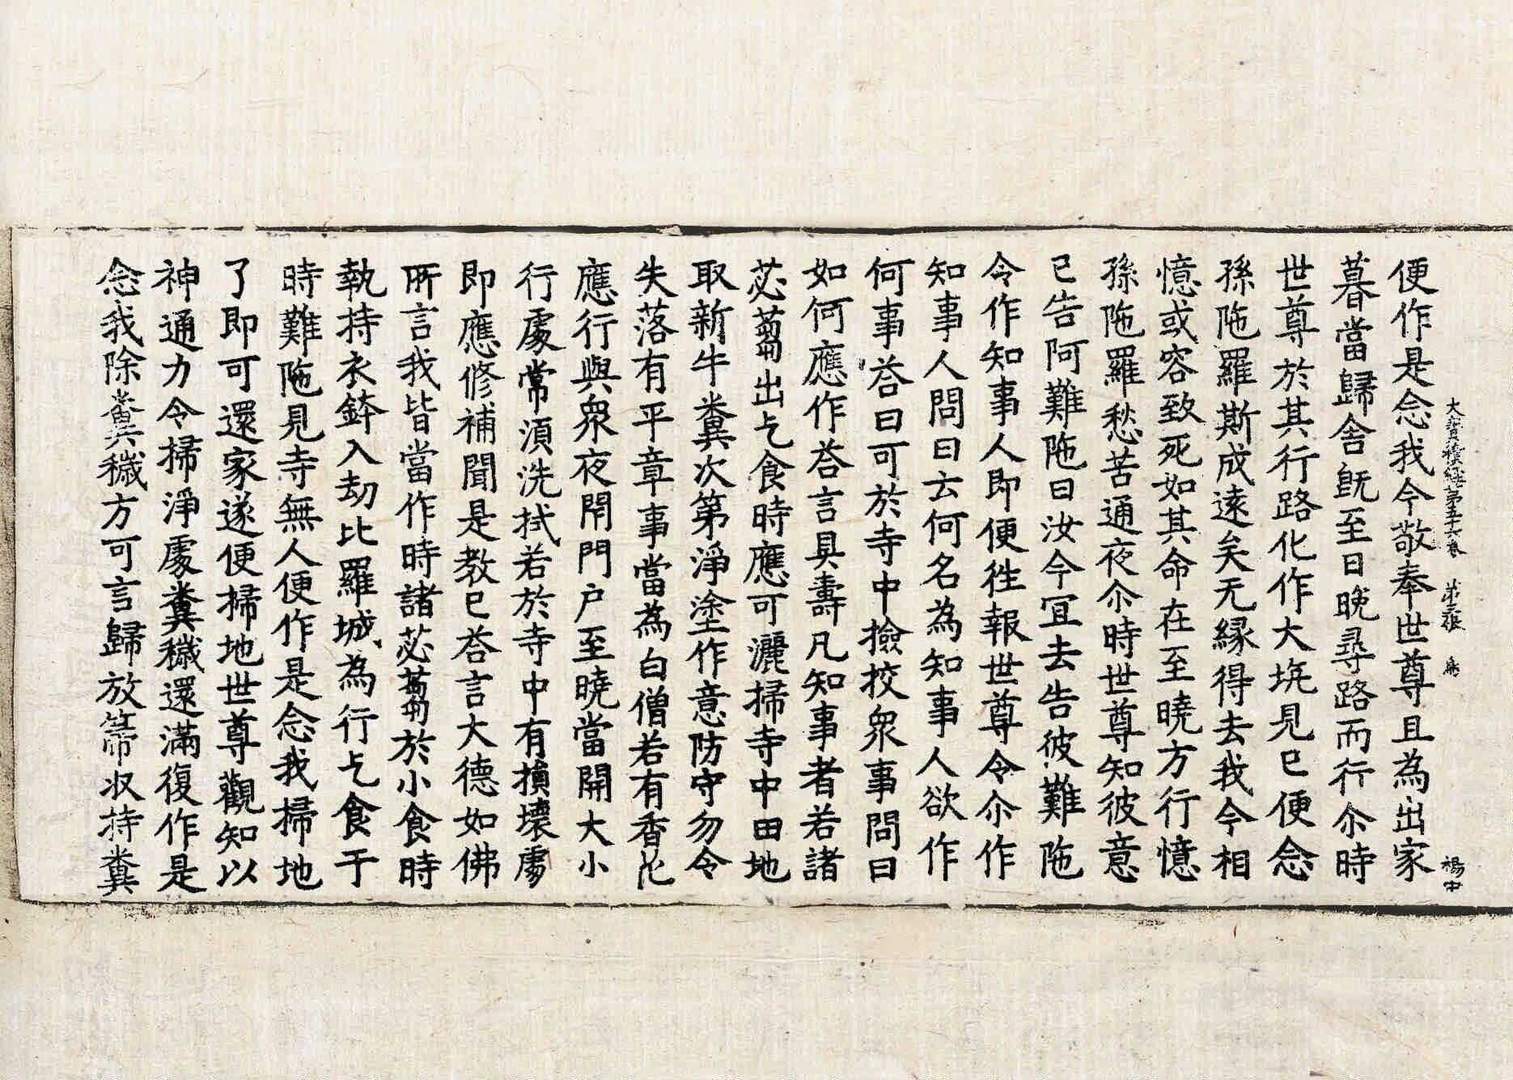 大寶積經第五十六卷 第三張 楊中
便作是念我今敬奉世尊且為出家
暮當歸舍旣至日晚尋路而行尒時
世尊於其行路化作大坑見已便念
孫陁羅斯成遠矣无緣得去我今相
憶或容致死如其命在至曉方行憶
孫陁羅愁苦通夜尒時世尊知彼意
已告阿難陁曰汝今冝去告彼難陁
令作知事人即便徃報世尊令尒作
知事人問曰云何名為知事人欲作
何事荅曰可於寺中撿挍衆事問曰
如何應作荅言具壽凡知事者若諸
苾蒭出乞食時應可灑掃寺中田地
取新牛糞次第淨塗作意防守勿令
失落有平章事當為白僧若有香花
應行與衆夜閇門户至曉當開大小
行處常湏洗拭若於寺中有損壞處
即應修補聞是教已荅言大德如佛
所言我皆當作時諸苾蒭於小食時
執持衣鉢入劫比羅城為行乞食于
時難陁見寺無人便作是念我掃地
了即可還家遂便掃地世尊觀知以
神通力令掃淨處糞穢還滿復作是
念我除糞穢方可言歸放箒収持糞